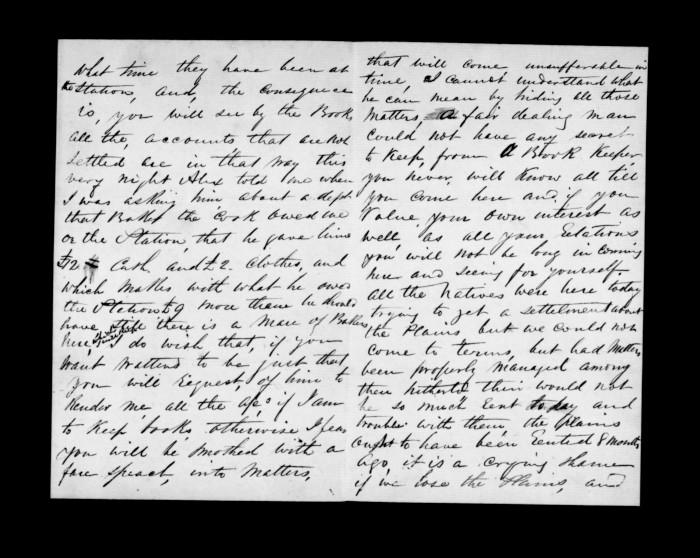 what time they have been at
the Stations, and, the consequence
is, you will see by the Books
all the, accounts that are not
Settled are in that way this
very night Alex told me when
I was asking him about a debt
that Baker the Cook owed me
or the Station, that he gave him
£2 Cash and £2. Clothes, and
which makes with what he owes
the Station £9 more then he should
have there is a Mare of Bakers
here, I do wish that, if you
want matters to be just that
you will Request, of him to
Render me all the a/cs if I am
to Keep books, otherwise I fear
you will be with a
fare Speach, into Matters,
that will come unsufferable in
time, I cannot understand what
he can mean by hiding all those
Matters a fair dealing man
could not have any secret
to Keep, from A Book Keeper,
you never, will Know all till
you come here and, if you
Value your own interest as
well as all your Relations
you will not be long in coming
here and Seeing for yourself.
All the Natives were here today
trying to get a settelment about
the Plains but we could not
come to terms, but had Matters
been properly managed among
them hitherto their would not
be so much Rent to day and
trouble with them, the Plains
ought to have been Rented 8 months
ago, it is a crying shame
if we lose the Plains, and